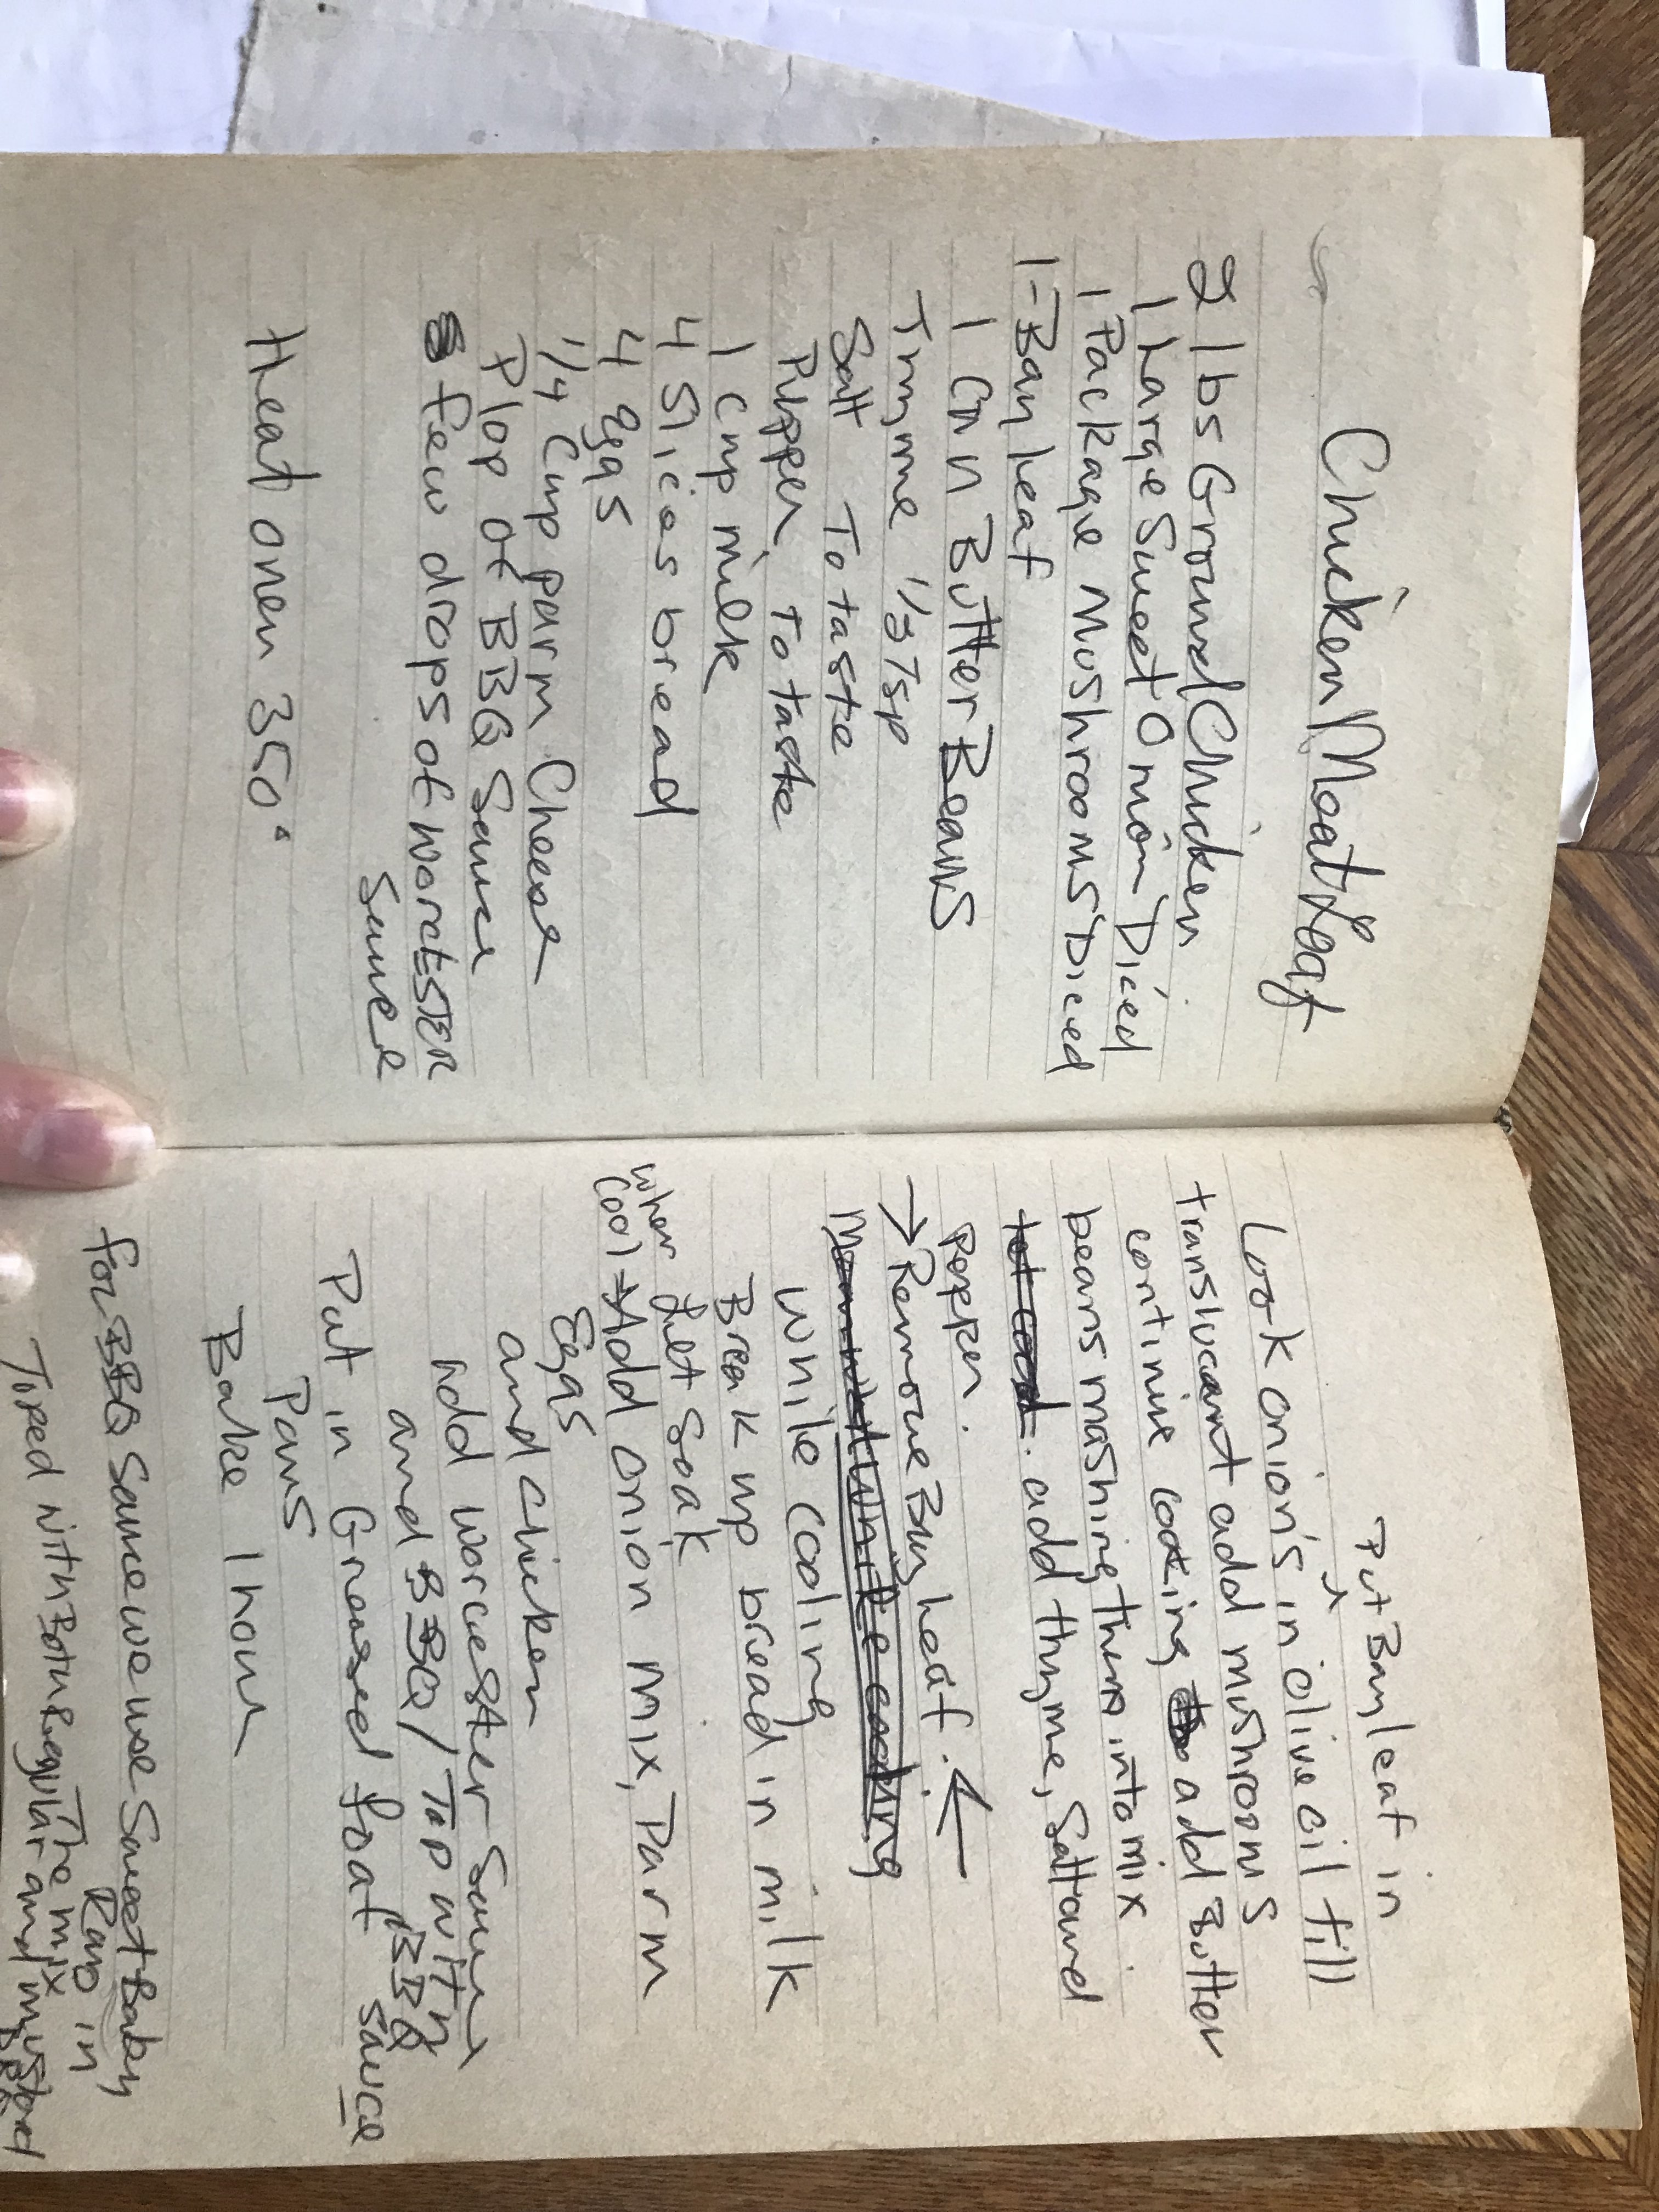 Chicken Meat Loaf
2 lbs Ground Chicken
1 Large Sweet Onion Diced
1 Package Mushrooms Diced
1-Bay Leaf
1 Can Butter Beans
Thyme 1/2 Tsp
Salt To taste
Pepper To taste
1 Cup milk
4 Slices bread
4 Eggs
1/4 Cup parm Cheese
Plop of BBQ Sauce
few drops of WorcESTER
Sauce
Heat oven 350°
Put Bay leaf in
Cook onion's in olive oil till
translucant add mushrooms
continue cooking add Butter
beans mashing them into mix
add thyme, Salt and
Pepper.
→ Remove Bay Leaf. ←
While cooling
Break up bread in milk
Let Soak
when
cool → Add onion mix, Parm
Eggs
and chicken
Add Worcester Sauce
and BBQ / Top with
BBQ
sauce
Put in Greased Loaf
Pans
Bake 1 hour
for BBQ Sauce we use Sweet Baby
Rays in
The mix
Toped with Both Regular and mustard